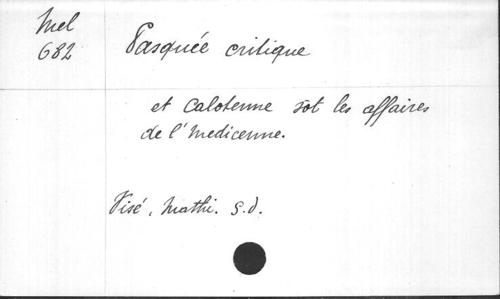 Mel
682
Pasquée critique
et calotenne sot les affaires
de l'Medicenne.
Visé, Mathi. S.d.